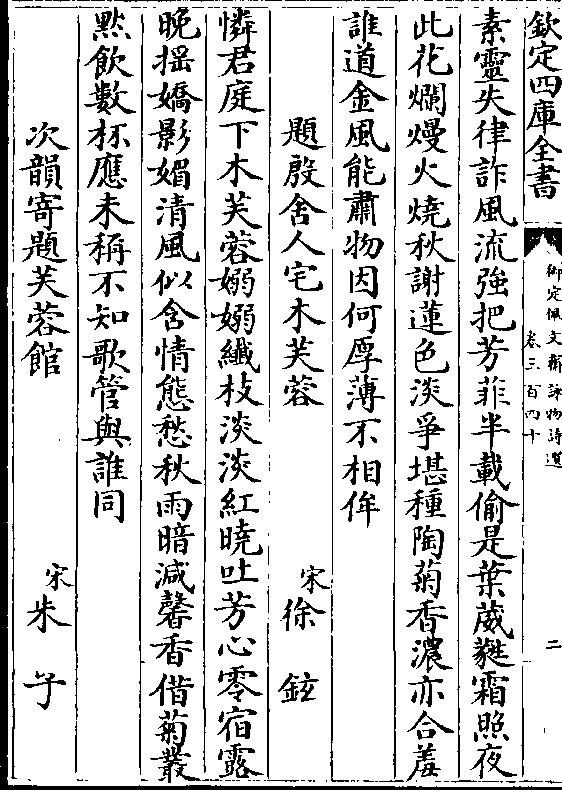 欽定四庫全書
御定佩文齋詠物詩選
卷三百四十
二
素靈失律詐風流強把芳菲半載偷是葉葳蕤霜照夜
此花爛熳火燒秋謝蓮色淡爭堪種陶菊香濃亦合羞
誰道金風能肅物因何厚薄不相侔
題殷舍人宅木芙蓉
宋徐鉉
憐君庭下木芙蓉嫋嫋纖枝淡淡紅曉吐芳心零宿露
晚揺嬌影媚清風似含情態愁秋雨暗減馨香借菊叢
㸃飲數杯應未稱不知歌管與誰同
次韻寄題芙蓉館
宋朱子